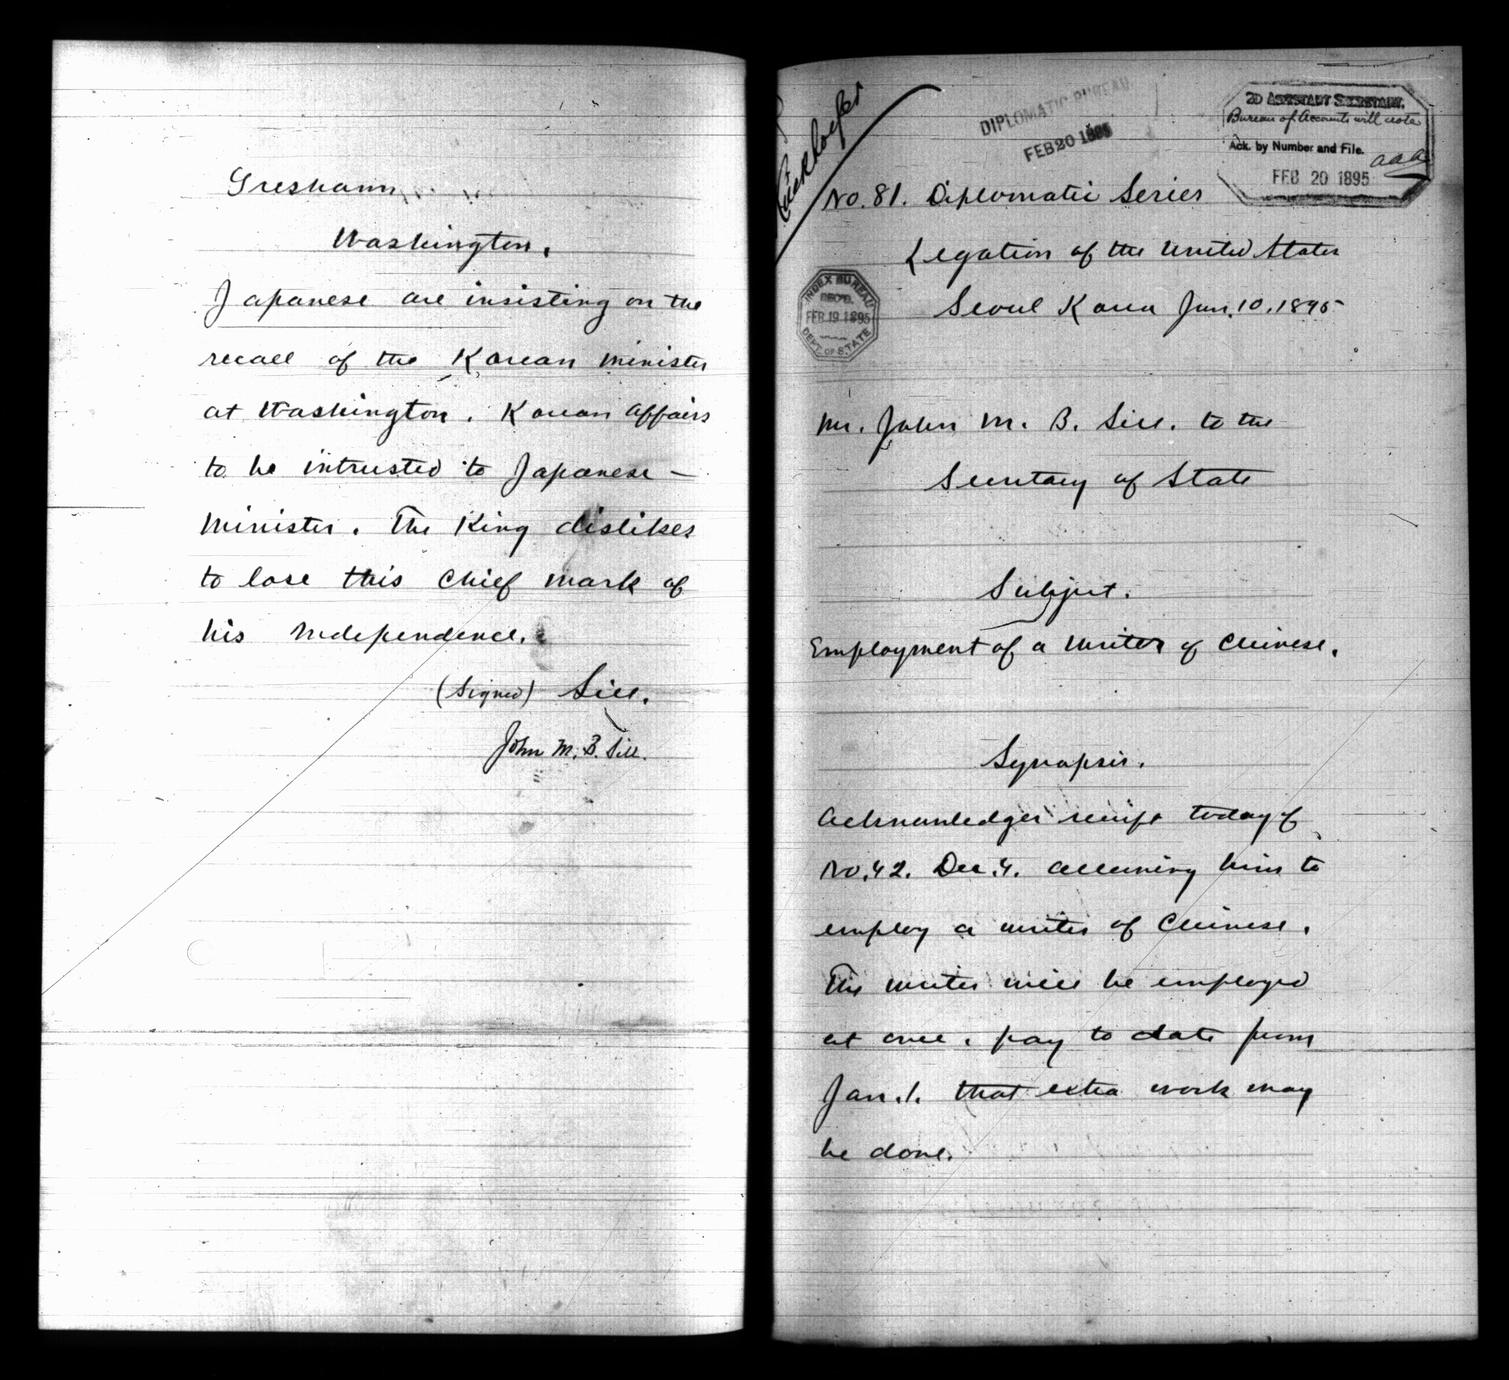 Gresham
Washington.
Japanese are insisting on the
recall of the Korean Minister
at Washington. Korean affairs
to be intrusted to Japanese –
Minister. The King dislikes
to lose this chief mark of
his Independence.
(Signed) Sill.
John M. B. Sill.
DIPLOMATIC BUREAU
FEB 20 1895
2D ASSISTANT SECRETARY.
Bureau of Accounts will note
Ack. by Number and File.
aaa
FEB 20 1895
No. 81. Diplomatic Series
Legation of the United States
INDEX BUREAU
REC'D.
FEB. 19 1895
DEPT. OF STATE
Seoul Korea Jan. 10. 1895
Mr. John M. B. Sill. to the
Secretary of State
Subject.
Employment of a writer of Chinese.
Synopsis.
Acknowledges receipt today of
No. 42. Dec. 4. allowing him to
employ a writer of Chinese.
The writer will be employed
at once, pay to date from
Jan. 1. that extra work may
be done.